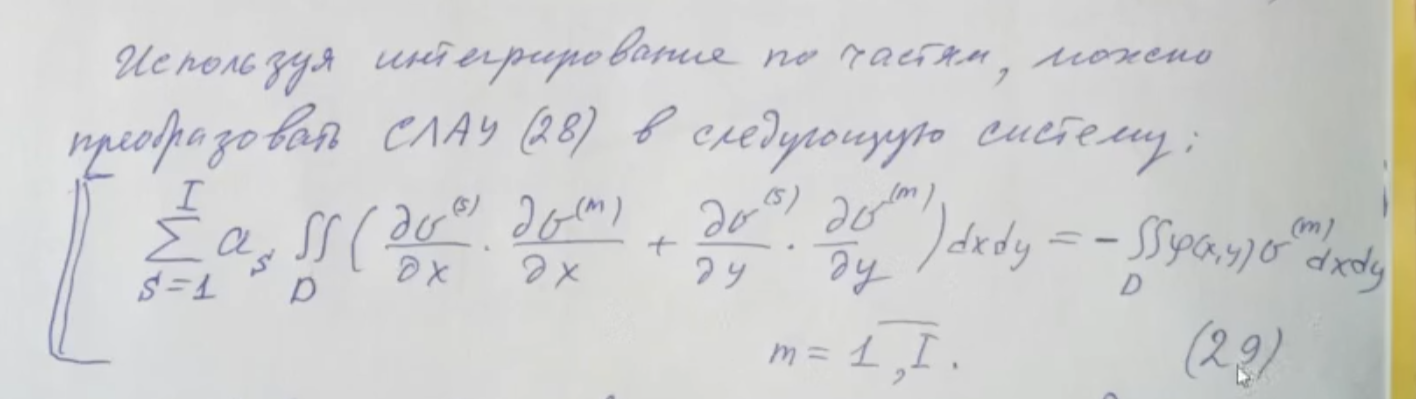 Используя интегрирование по частям, можно
преобразовать СЛАУ (28) в следующую систему:
[ \sum_{s=1}^{I} a_s \iint_D ( \frac{∂σ^{(s)}}{∂x} · \frac{∂σ^{(m)}}{∂x} + \frac{∂σ^{(s)}}{∂y} · \frac{∂σ^{(m)}}{∂y} ) dxdy = - \iint_D φ(x,y) σ^{(m)} dxdy
m = \overline{1, I}. (29)